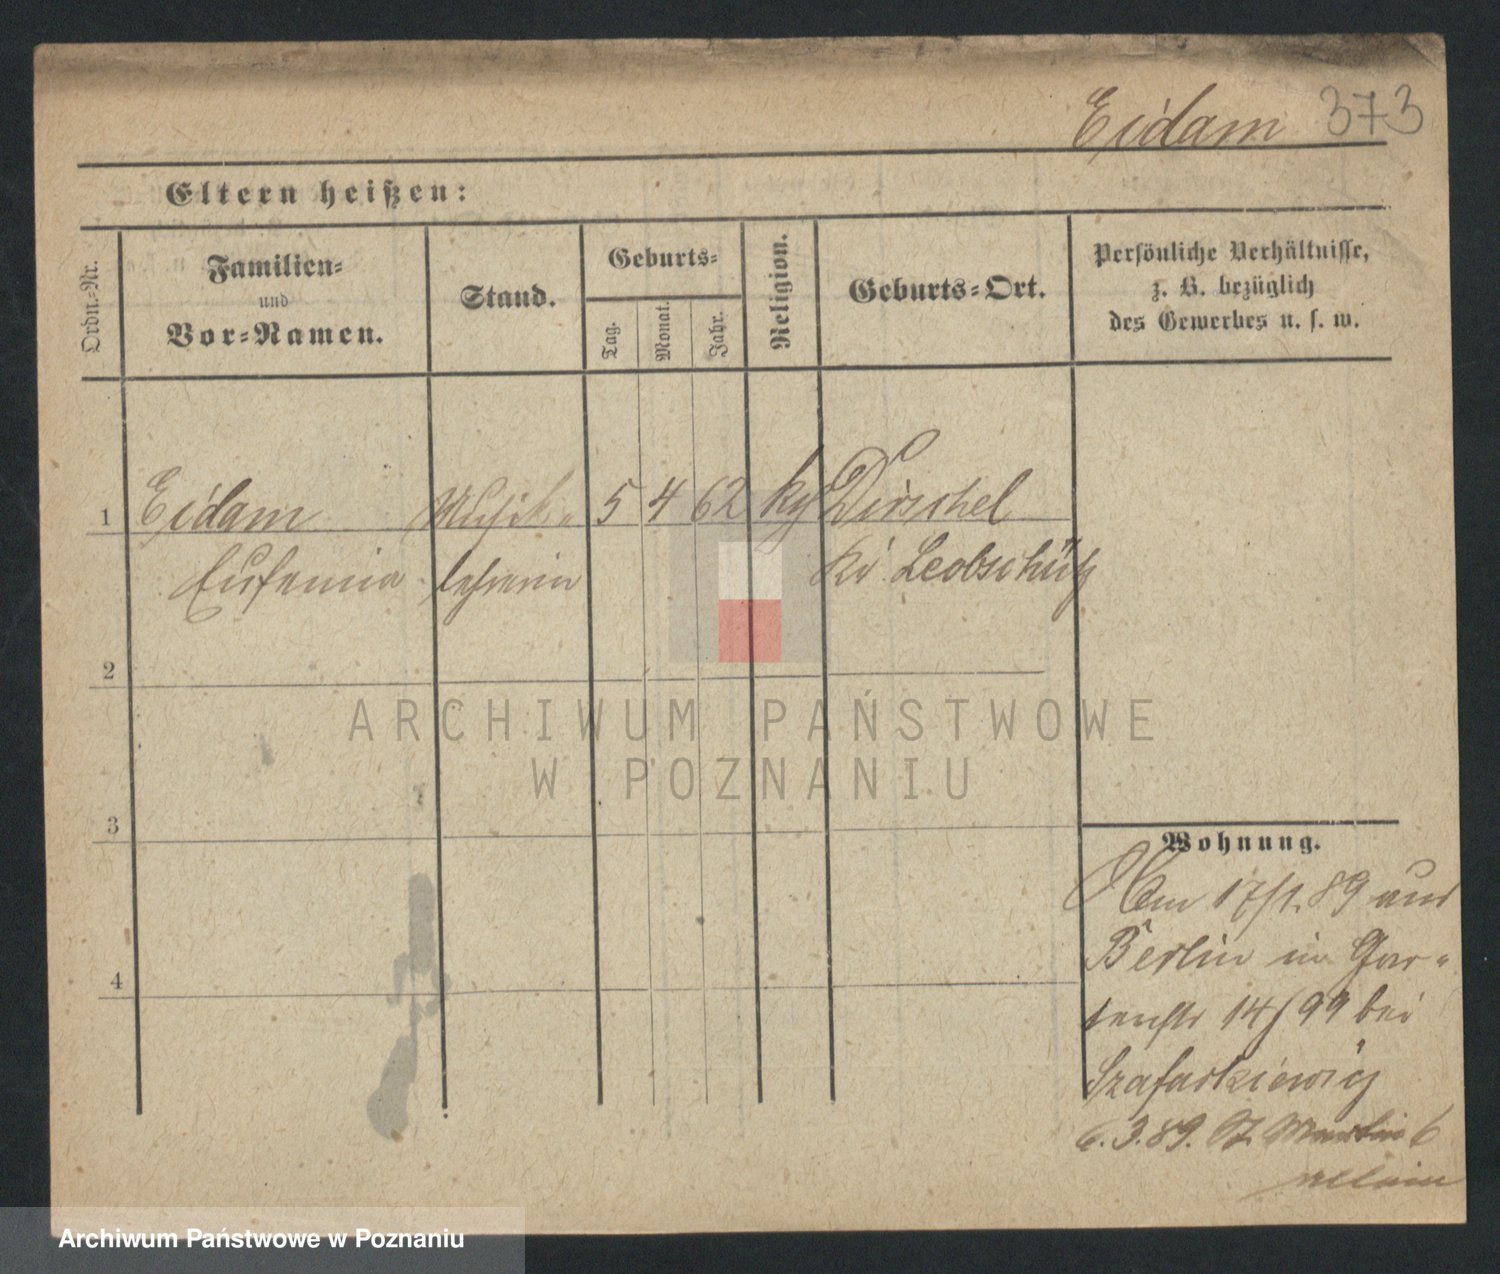 Eidam 373
Eltern heißen:
Ordn.-Nr.
Familien-
und
Vor-Namen.
Stand.
Geburts-
Tag.
Monat.
Jahr.
Religion.
Geburts-Ort.
Persönliche Verhältnisse,
z. B. bezüglich
des Gewerbes u. s. w.
1 Eidam Musik- 5 4 62 Dirschel
Eufemia lehrerin Leobschütz
2
3
4
Wohnung.
Am 17/1. 89 aus
Berlin in Gar-
tenstr 14/99 bei
Szafarkiewicz
6.3.89. St. Martin 6
allein
ARCHIWUM PAŃSTWOWE
W POZNANIU
Archiwum Państwowe w Poznaniu